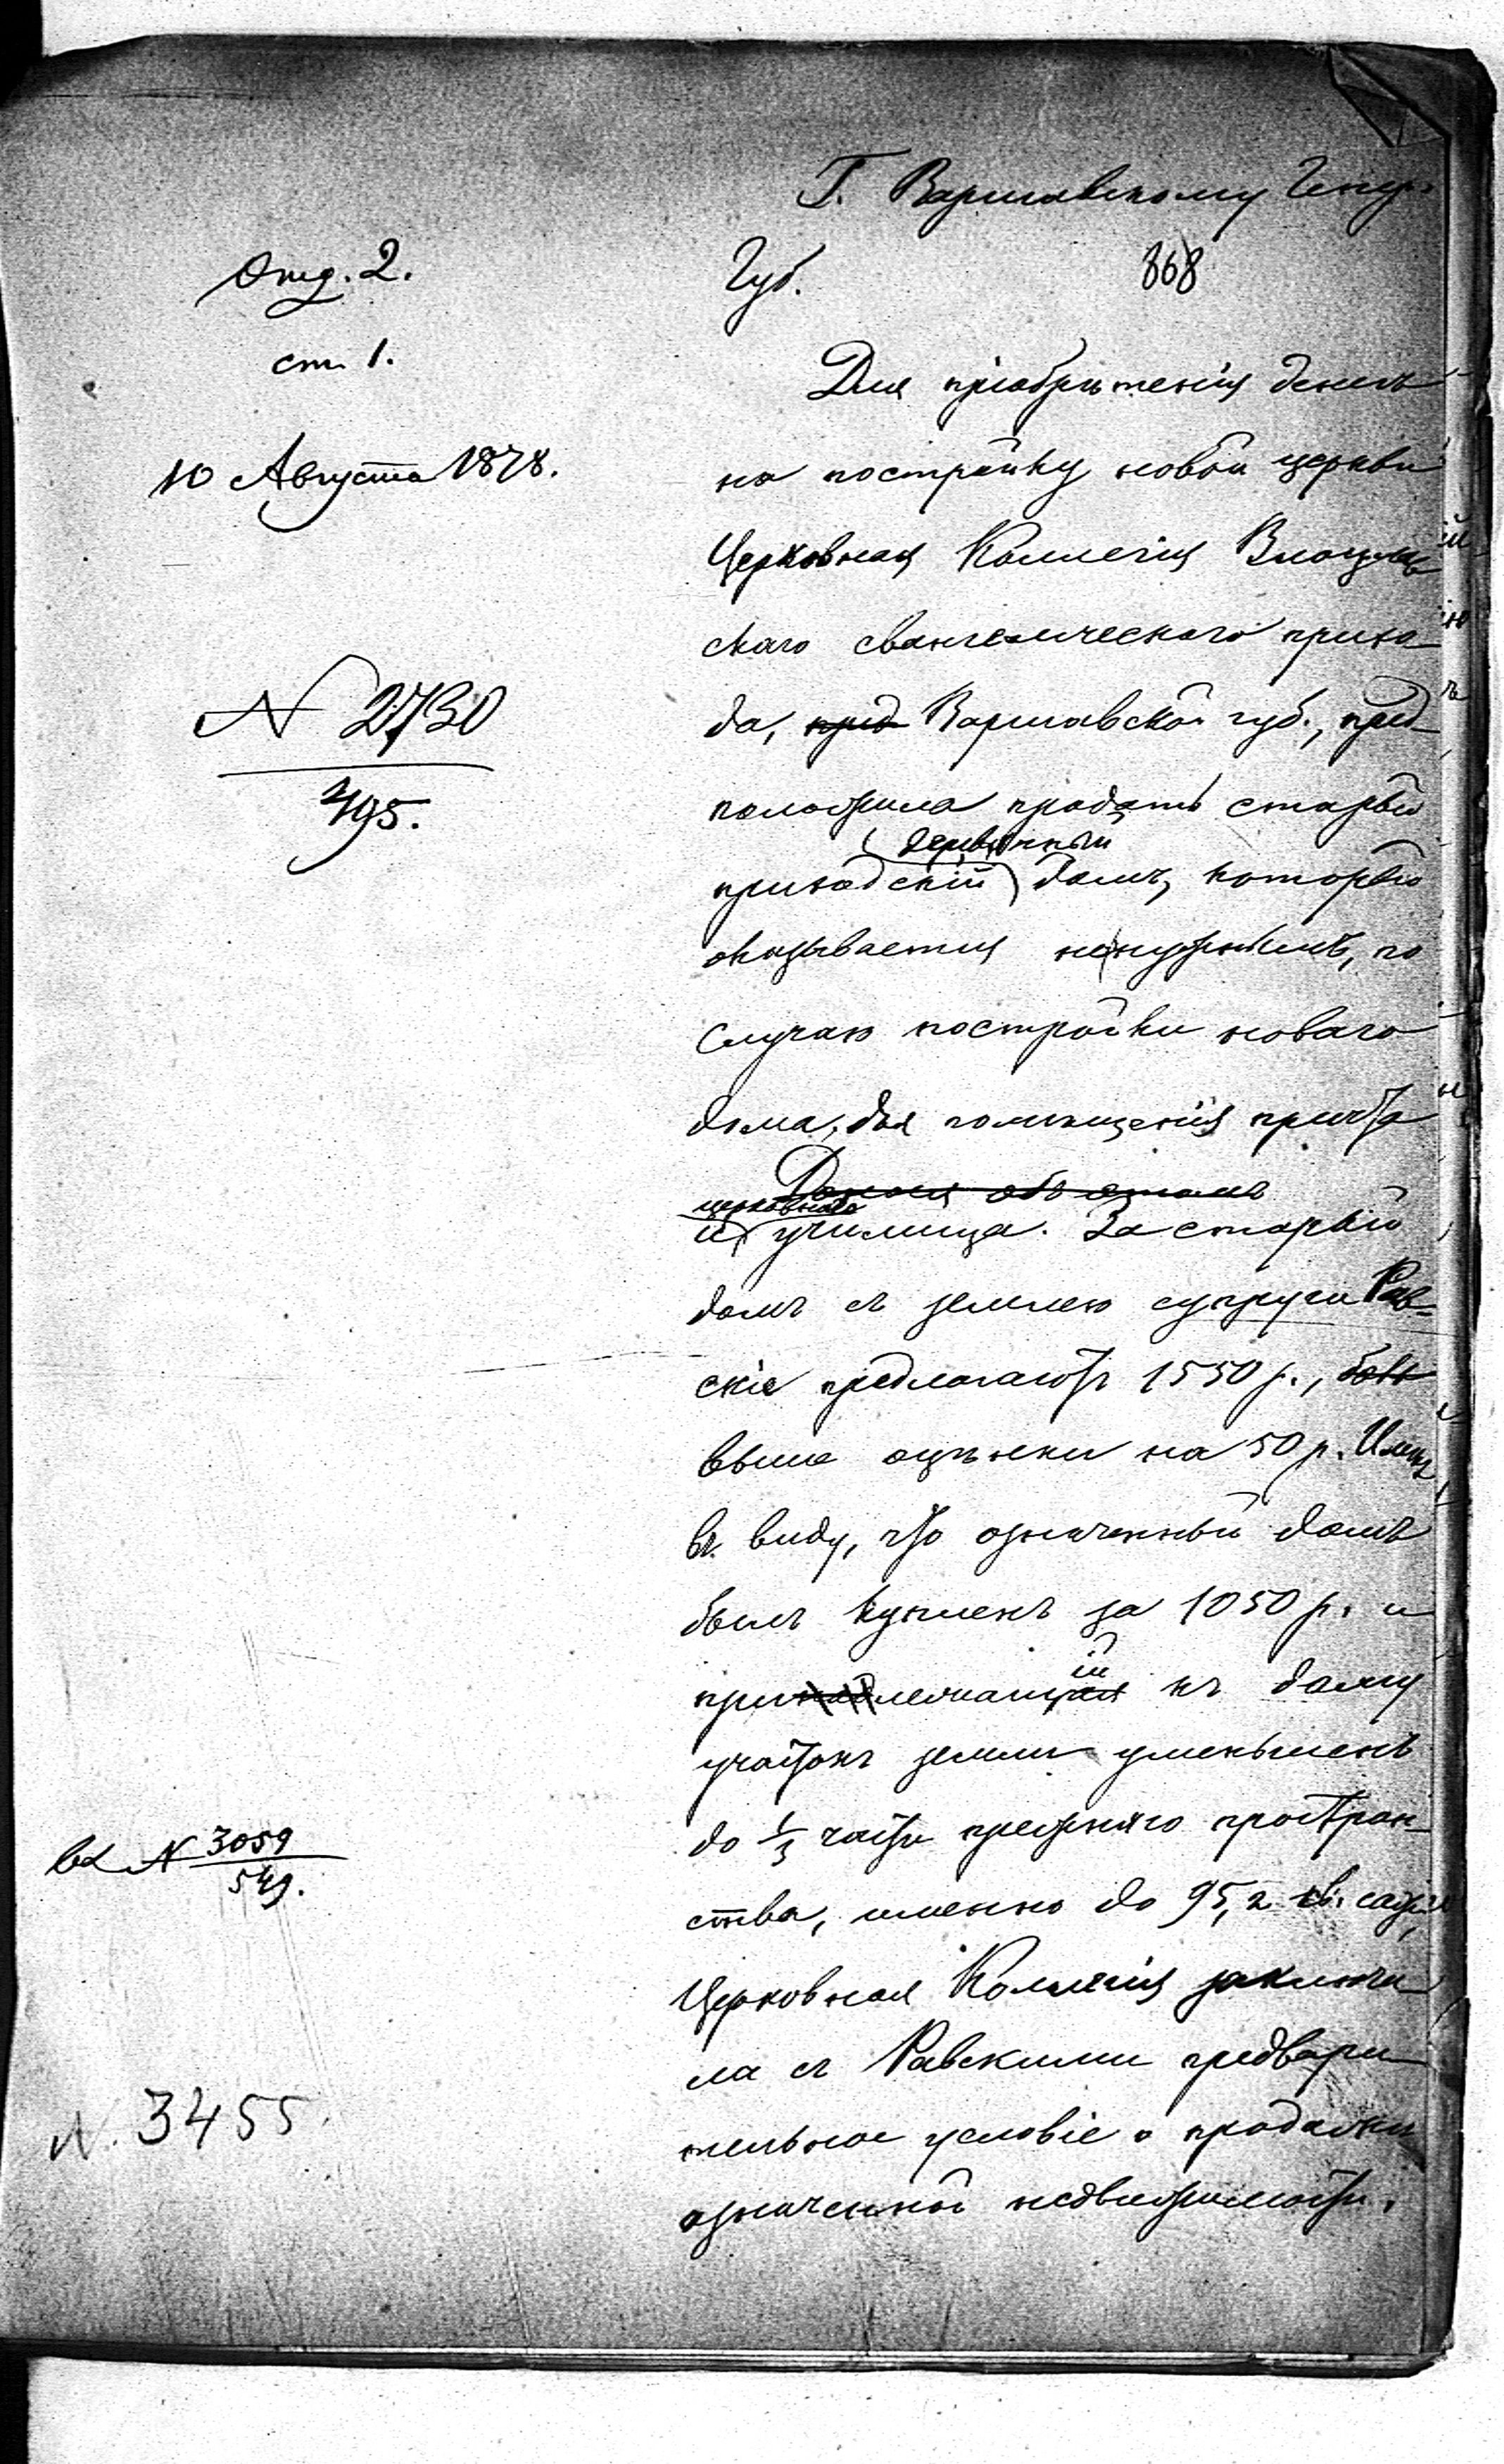 Г. Варшавскому Генер.
Губ.
868
Отд. 2.
ст. 1.
10 Августа 1878.
N 2730
495.
вх N 3059
549.
N. 3455.
Для пріобрѣтенія денегъ
на постройку новой церкви
Церковная Коллегія Влоцлав
скаго евангелическаго прихо-
да, пред Варшавской губ., пред-
положила продать старый
деревянный
приходскій домъ, который
оказывается ненужнымъ, по
случаю постройки новаго
дома, для помѣщенія причта
Донося объ этомъ
церковнаго
и училища. За старый
домъ съ землею супруги Рав-
скіе предлагаютъ 1550 р.,
выше оцѣнки на 50 р. Имѣя
въ виду, что означенный домъ
былъ купленъ за 1050 р. и
ій
принадлежащая къ дому
участокъ земли уменьшенъ
до 1/3 части прежняго простран-
ства, именно до 95,2 кв. саж.,
Церковная Коллегія заключи
ла съ Равскими предвари-
тельное условіе о продажѣ
означенной недвижимости.